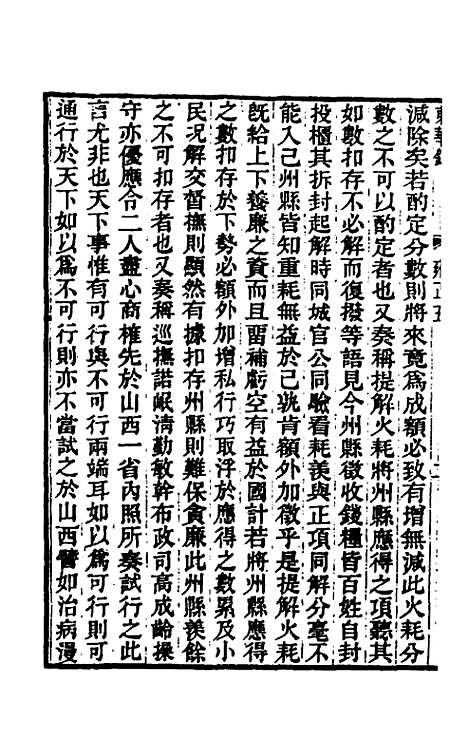 減除矣若酌定分數則將來竟爲成額必致有增無減此火耗分
數之不可以酌定者也又奏稱提解火耗將州縣應得之項聽其
如數扣存不必解而復撥等語見今州縣徵收錢糧皆百姓自封
投櫃其拆封起解時同城官公同驗看耗羨與正項同解分毫不
能入己州縣皆知重耗無益於己孰肯額外加徵乎是提解火耗
既給上下養廉之資而且留補虧空有益於國計若將州縣應得
之數扣存於下勢必額外加增私行巧取浮於應得之數累及小
民况解交督撫則顯然有據扣存州縣則難保貪廉此州縣羨餘
之不可扣存者也又奏稱巡撫諾岷清勤敏幹布政司高成齡操
守亦優應令二人盡心商榷先於山西一省內照所奏試行之此
言尤非也天下事惟有可行與不可行兩端耳如以爲可行則可
通行於天下如以爲不可行則亦不當試之於山西譬如治病漫